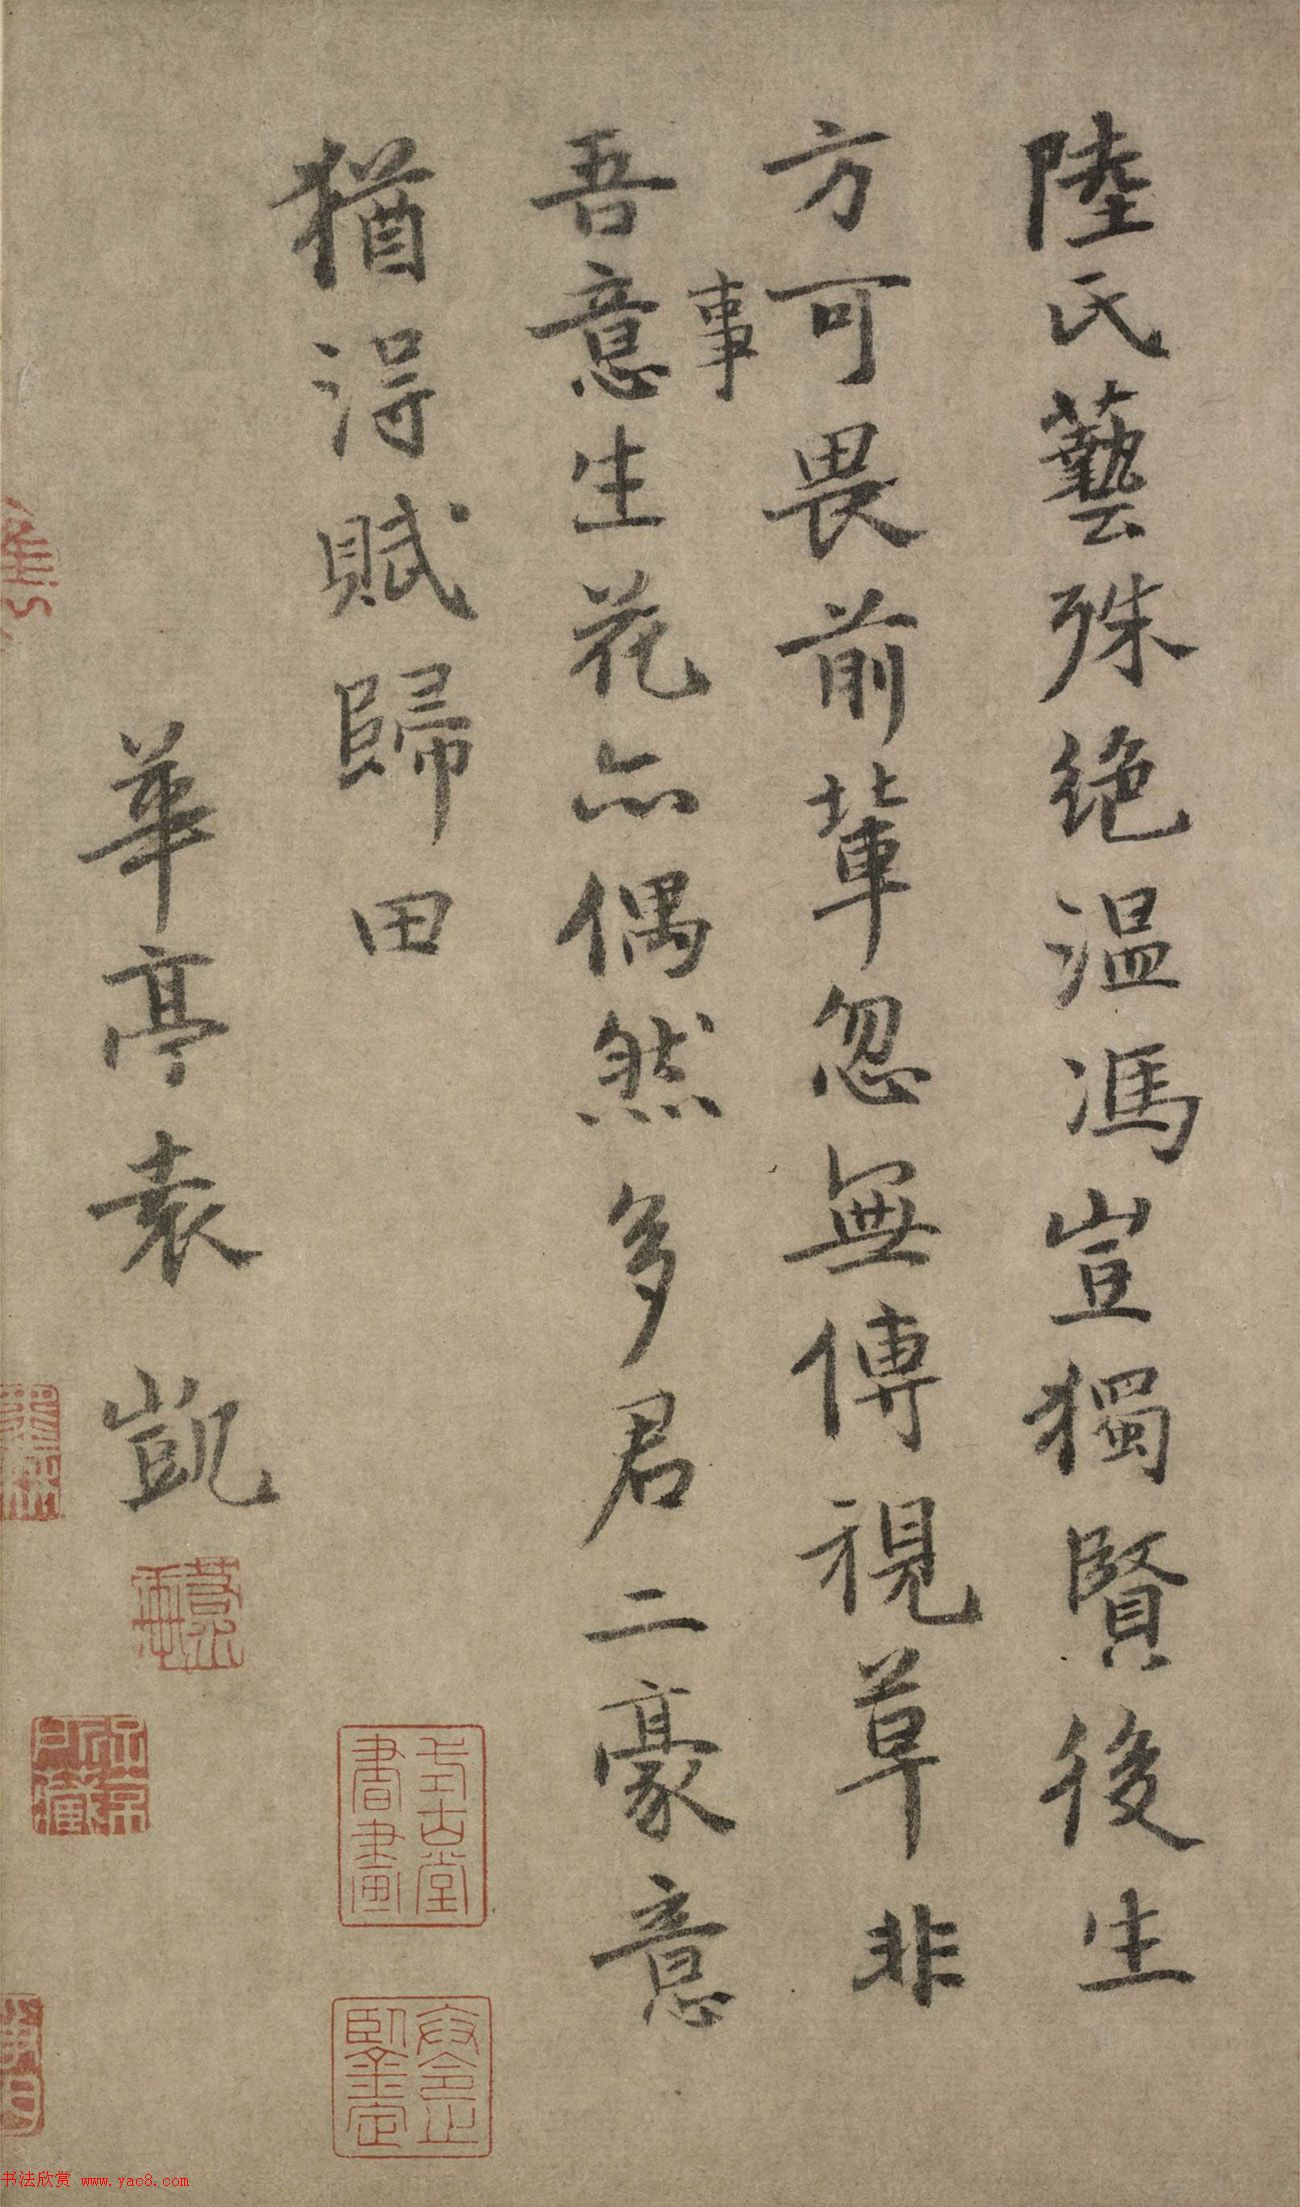 陸氏藝殊絕溫馮豈獨賢後生
方可畏前輩忽無傳視草非
事
吾意生花亦偶然多君二豪意
猶得賦歸田
華亭袁凱
式古堂書畫
卞令之鑒定
书法欣赏 www.yac8.com